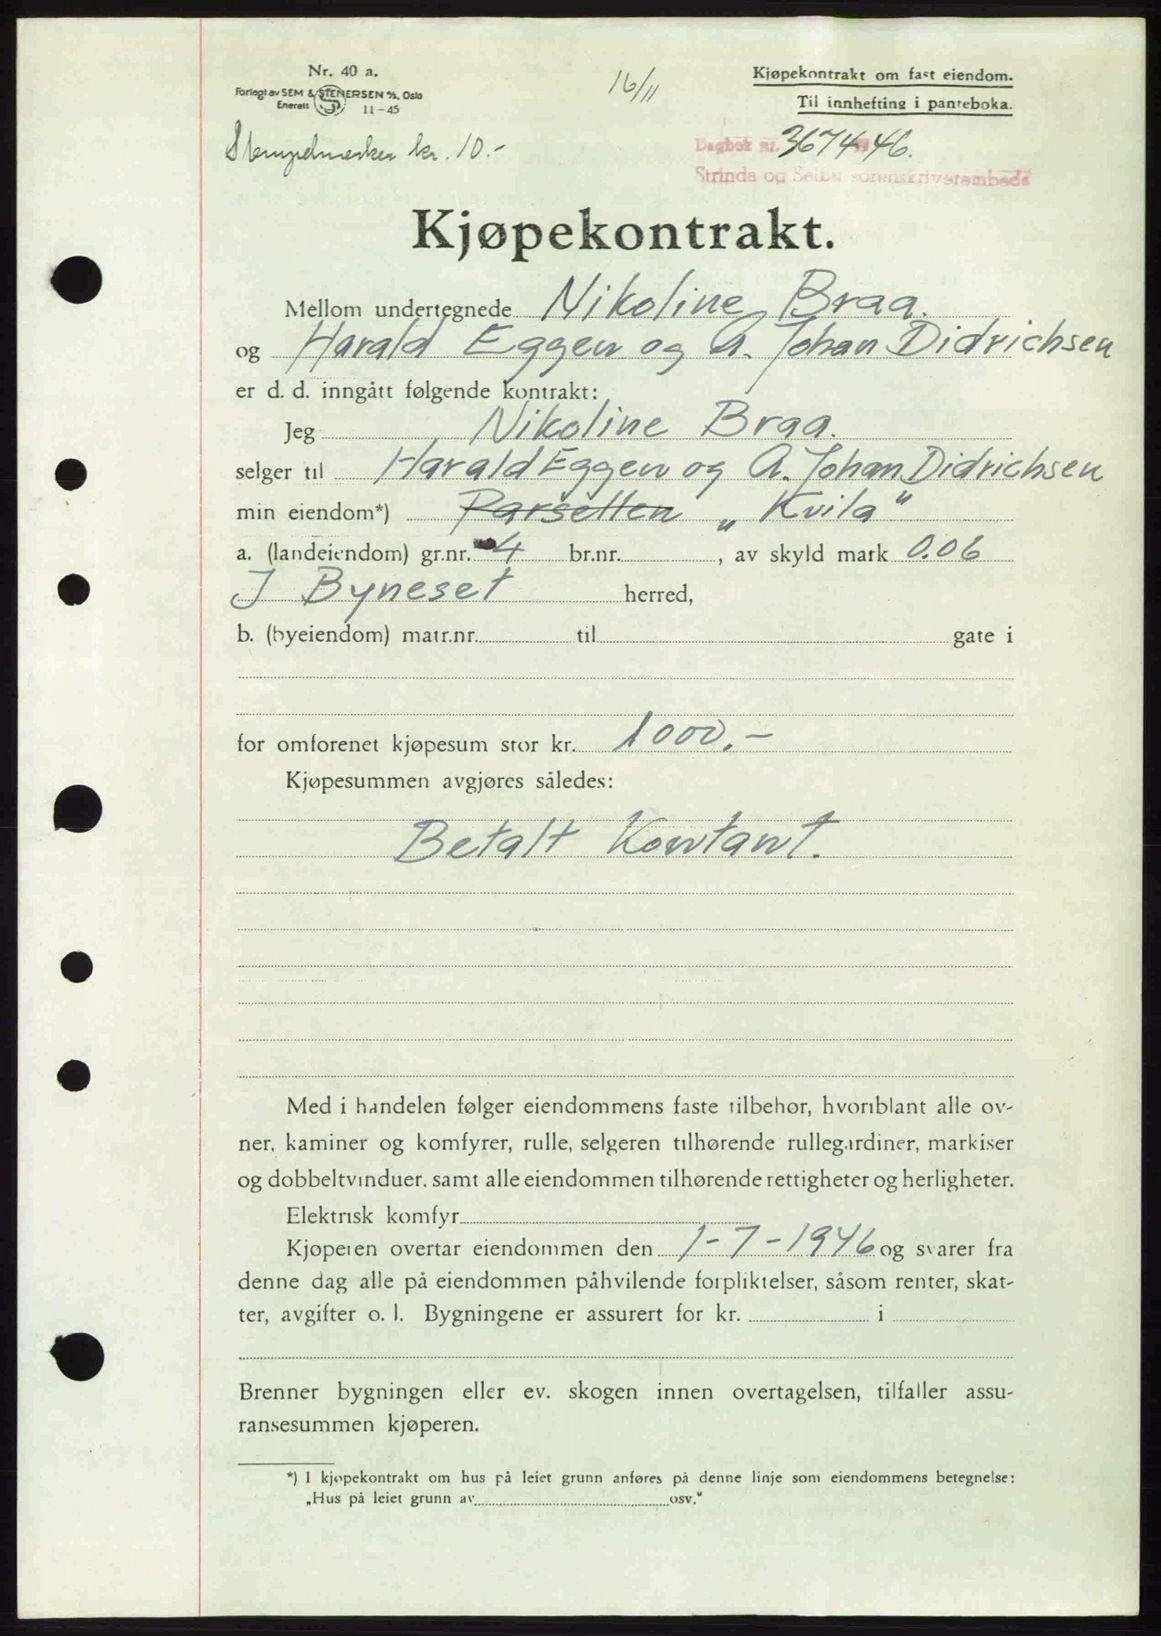 Nr. 40 a.
Forlagt av SEM & STENERSEN A/S, Oslo
Enerett 11-45
16/11
Kjøpekontrakt om fast eiendom.
Til innhefting i panteboka.
Stempelmerker kr. 10.-
Dagbok nr. 3674 46.
Strinda og Selbu sorenskriverembede
Kjøpekontrakt.
Mellom undertegnede Nikoline Braa.
og Harald Eggen og A. Johan Didrichsen
er d. d. inngått følgende kontrakt:
Jeg Nikoline Braa.
selger til Harald Eggen og A. Johan Didrichsen
min eiendom*) Parsellen „Kvila"
a. (landeiendom) gr.nr. 4 br.nr. , av skyld mark 0.06
I Byneset herred,
b. (byeiendom) matr.nr. til gate i
for omforenet kjøpesum stor kr. 1000.-
Kjøpesummen avgjøres således:
Betalt Kontant.
Med i handelen følger eiendommens faste tilbehør, hvoriblant alle ov-
ner, kaminer og komfyrer, rulle, selgeren tilhørende rullegardiner, markiser
og dobbeltvinduer, samt alle eiendommen tilhørende rettigheter og herligheter.
Elektrisk komfyr
Kjøperen overtar eiendommen den 1-7-1946 og svarer fra
denne dag alle på eiendommen påhvilende forpliktelser, såsom renter, skat-
ter, avgifter o. l. Bygningene er assurert for kr. i
Brenner bygningen eller ev. skogen innen overtagelsen, tilfaller assu-
ransesummen kjøperen.
*) I kjøpekontrakt om hus på leiet grunn anføres på denne linje som eiendommens betegnelse:
„Hus på leiet grunn av osv."